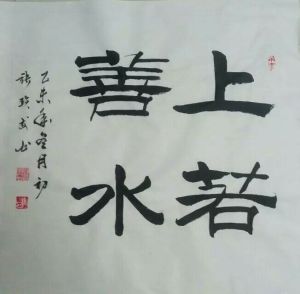 上善若水
乙未年冬月初